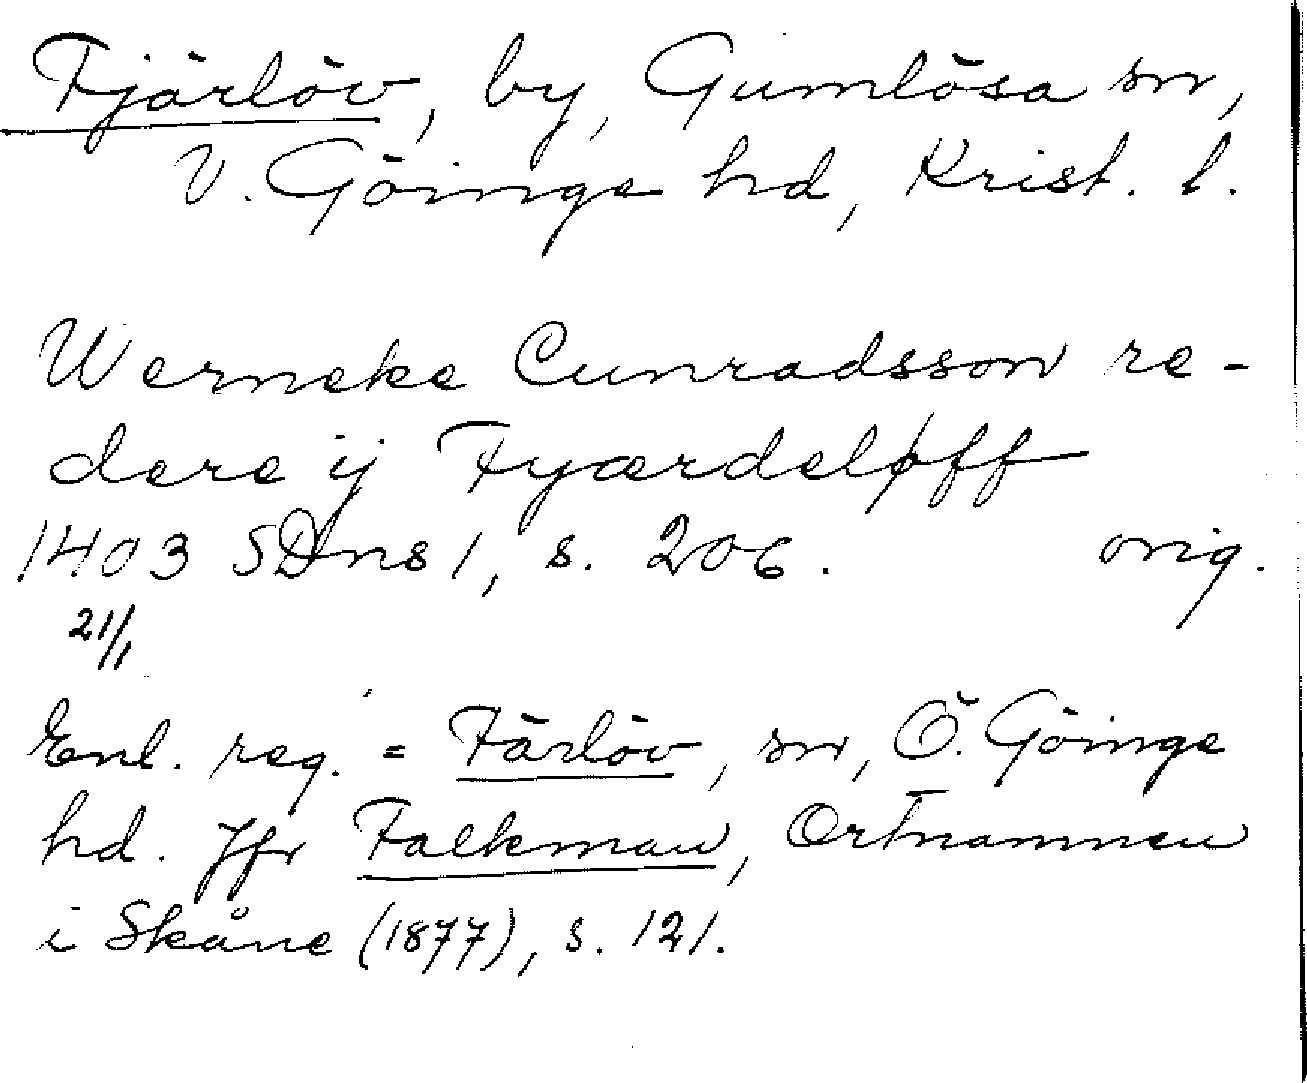 Fjärlöv, by, Gumlösa sn,
V. Göinge hd, Krist. l.
Werneke Cunradsson re-
dere ij Fyærdeløff
1403 SDns 1, s. 206. orig.
21/1
Enl. reg. = Färlöv, sn, Ö. Göinge
hd. Jfr Falkman, Ortnamnen
i Skåne (1877), s. 121.